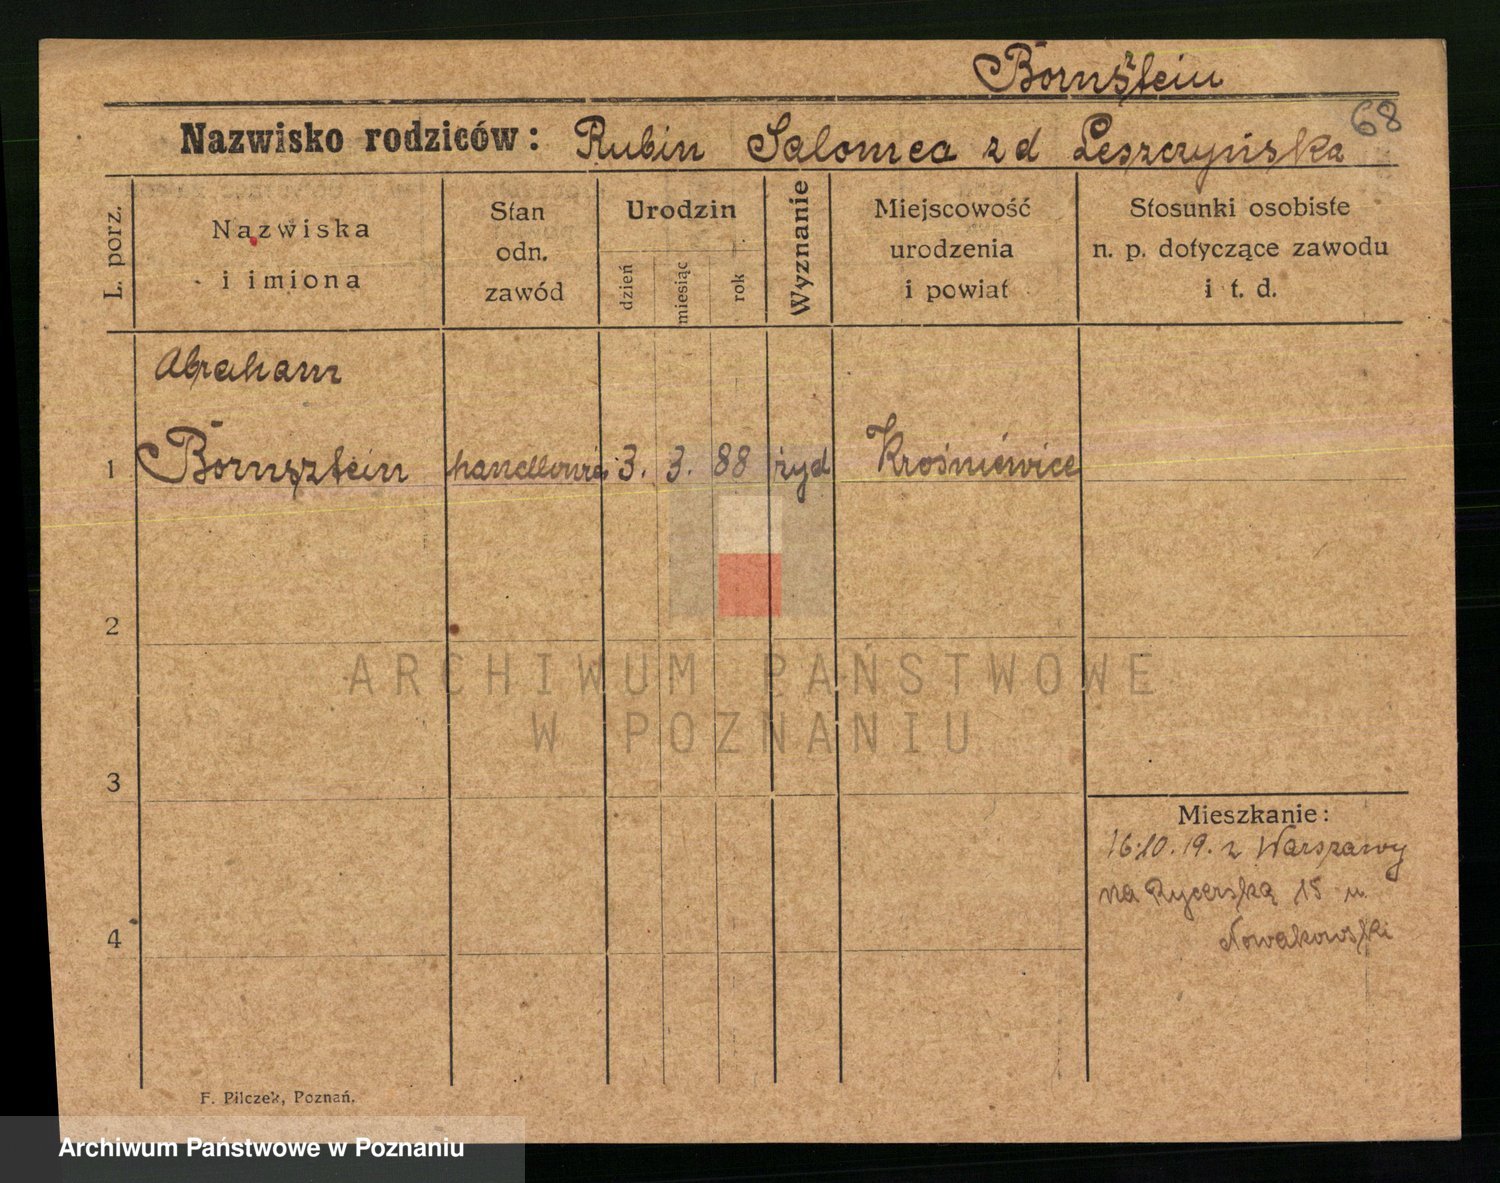 Bornsztein
68
Nazwisko rodziców: Rubin Salomea zd Leszczyńska
L. porz.
Nazwiska
i imiona
Stan
odn.
zawód
Urodzin
dzień
miesiąc
rok
Wyznanie
Miejscowość
urodzenia
i powiat
Stosunki osobiste
n. p. dotyczące zawodu
i t. d.
Abraham
1 Bornsztein handlowiec 3. 3. 88 żyd Krośniewice
2
ARCHIWUM PAŃSTWOWE
W POZNANIU
3
Mieszkanie:
16.10.19. z Warszawy
na Rycerską 15 u
Nowakowski
4
F. Pilczek, Poznań.
Archiwum Państwowe w Poznaniu